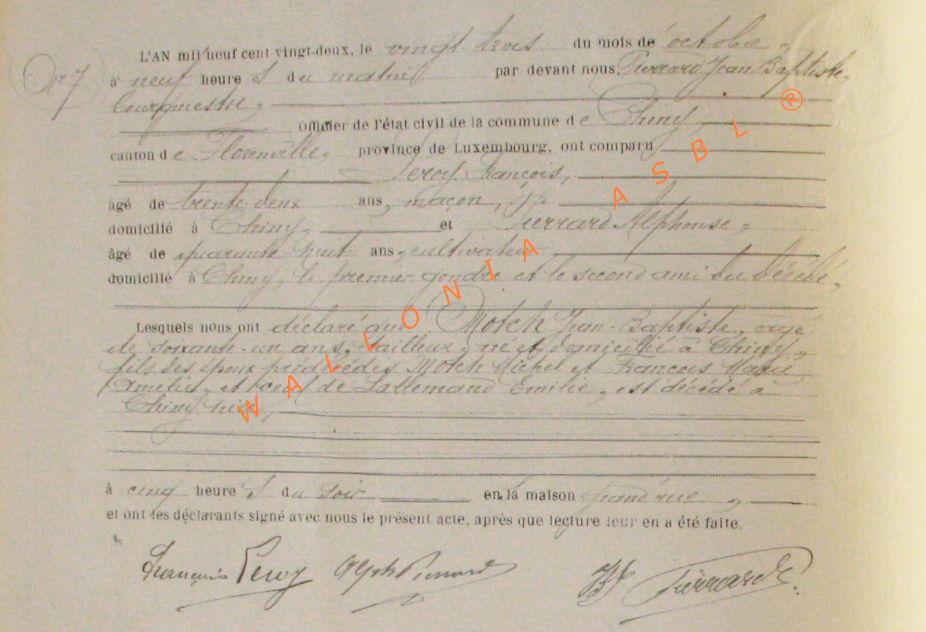 L'AN mil neuf cent vingt-deux, le vingt trois du mois de octobre,
N° 7
à neuf heure s du matin par devant nous Pierrard Jean Baptiste,
bourgmestre,
officier de l'état civil de la commune de Chiny,
canton de Florenville, province de Luxembourg, ont comparu
Leroy François,
âgé de trente deux ans, maçon,
domicilié à Chiny, et Pierrard Alphonse,
âgé de quarante huit ans, cultivateur
domicilié à Chiny, le premier gendre et le second ami du décédé,
Lesquels nous ont déclaré que Motch Jean-Baptiste, âgé
de soixante-un ans, tailleur, né et domicilié à Chiny,
fils des époux prédécédés Motch Michel et François Marie
Amélie, et veuf de Lallemand Emilie, est décédé à
Chiny hier,
à cinq heure s du soir en la maison grand'rue,
et ont les déclarants signé avec nous le présent acte, après que lecture leur en a été faite.
François Leroy Alph Pierrard JB Pierrard
WALLONIA ASBL ®